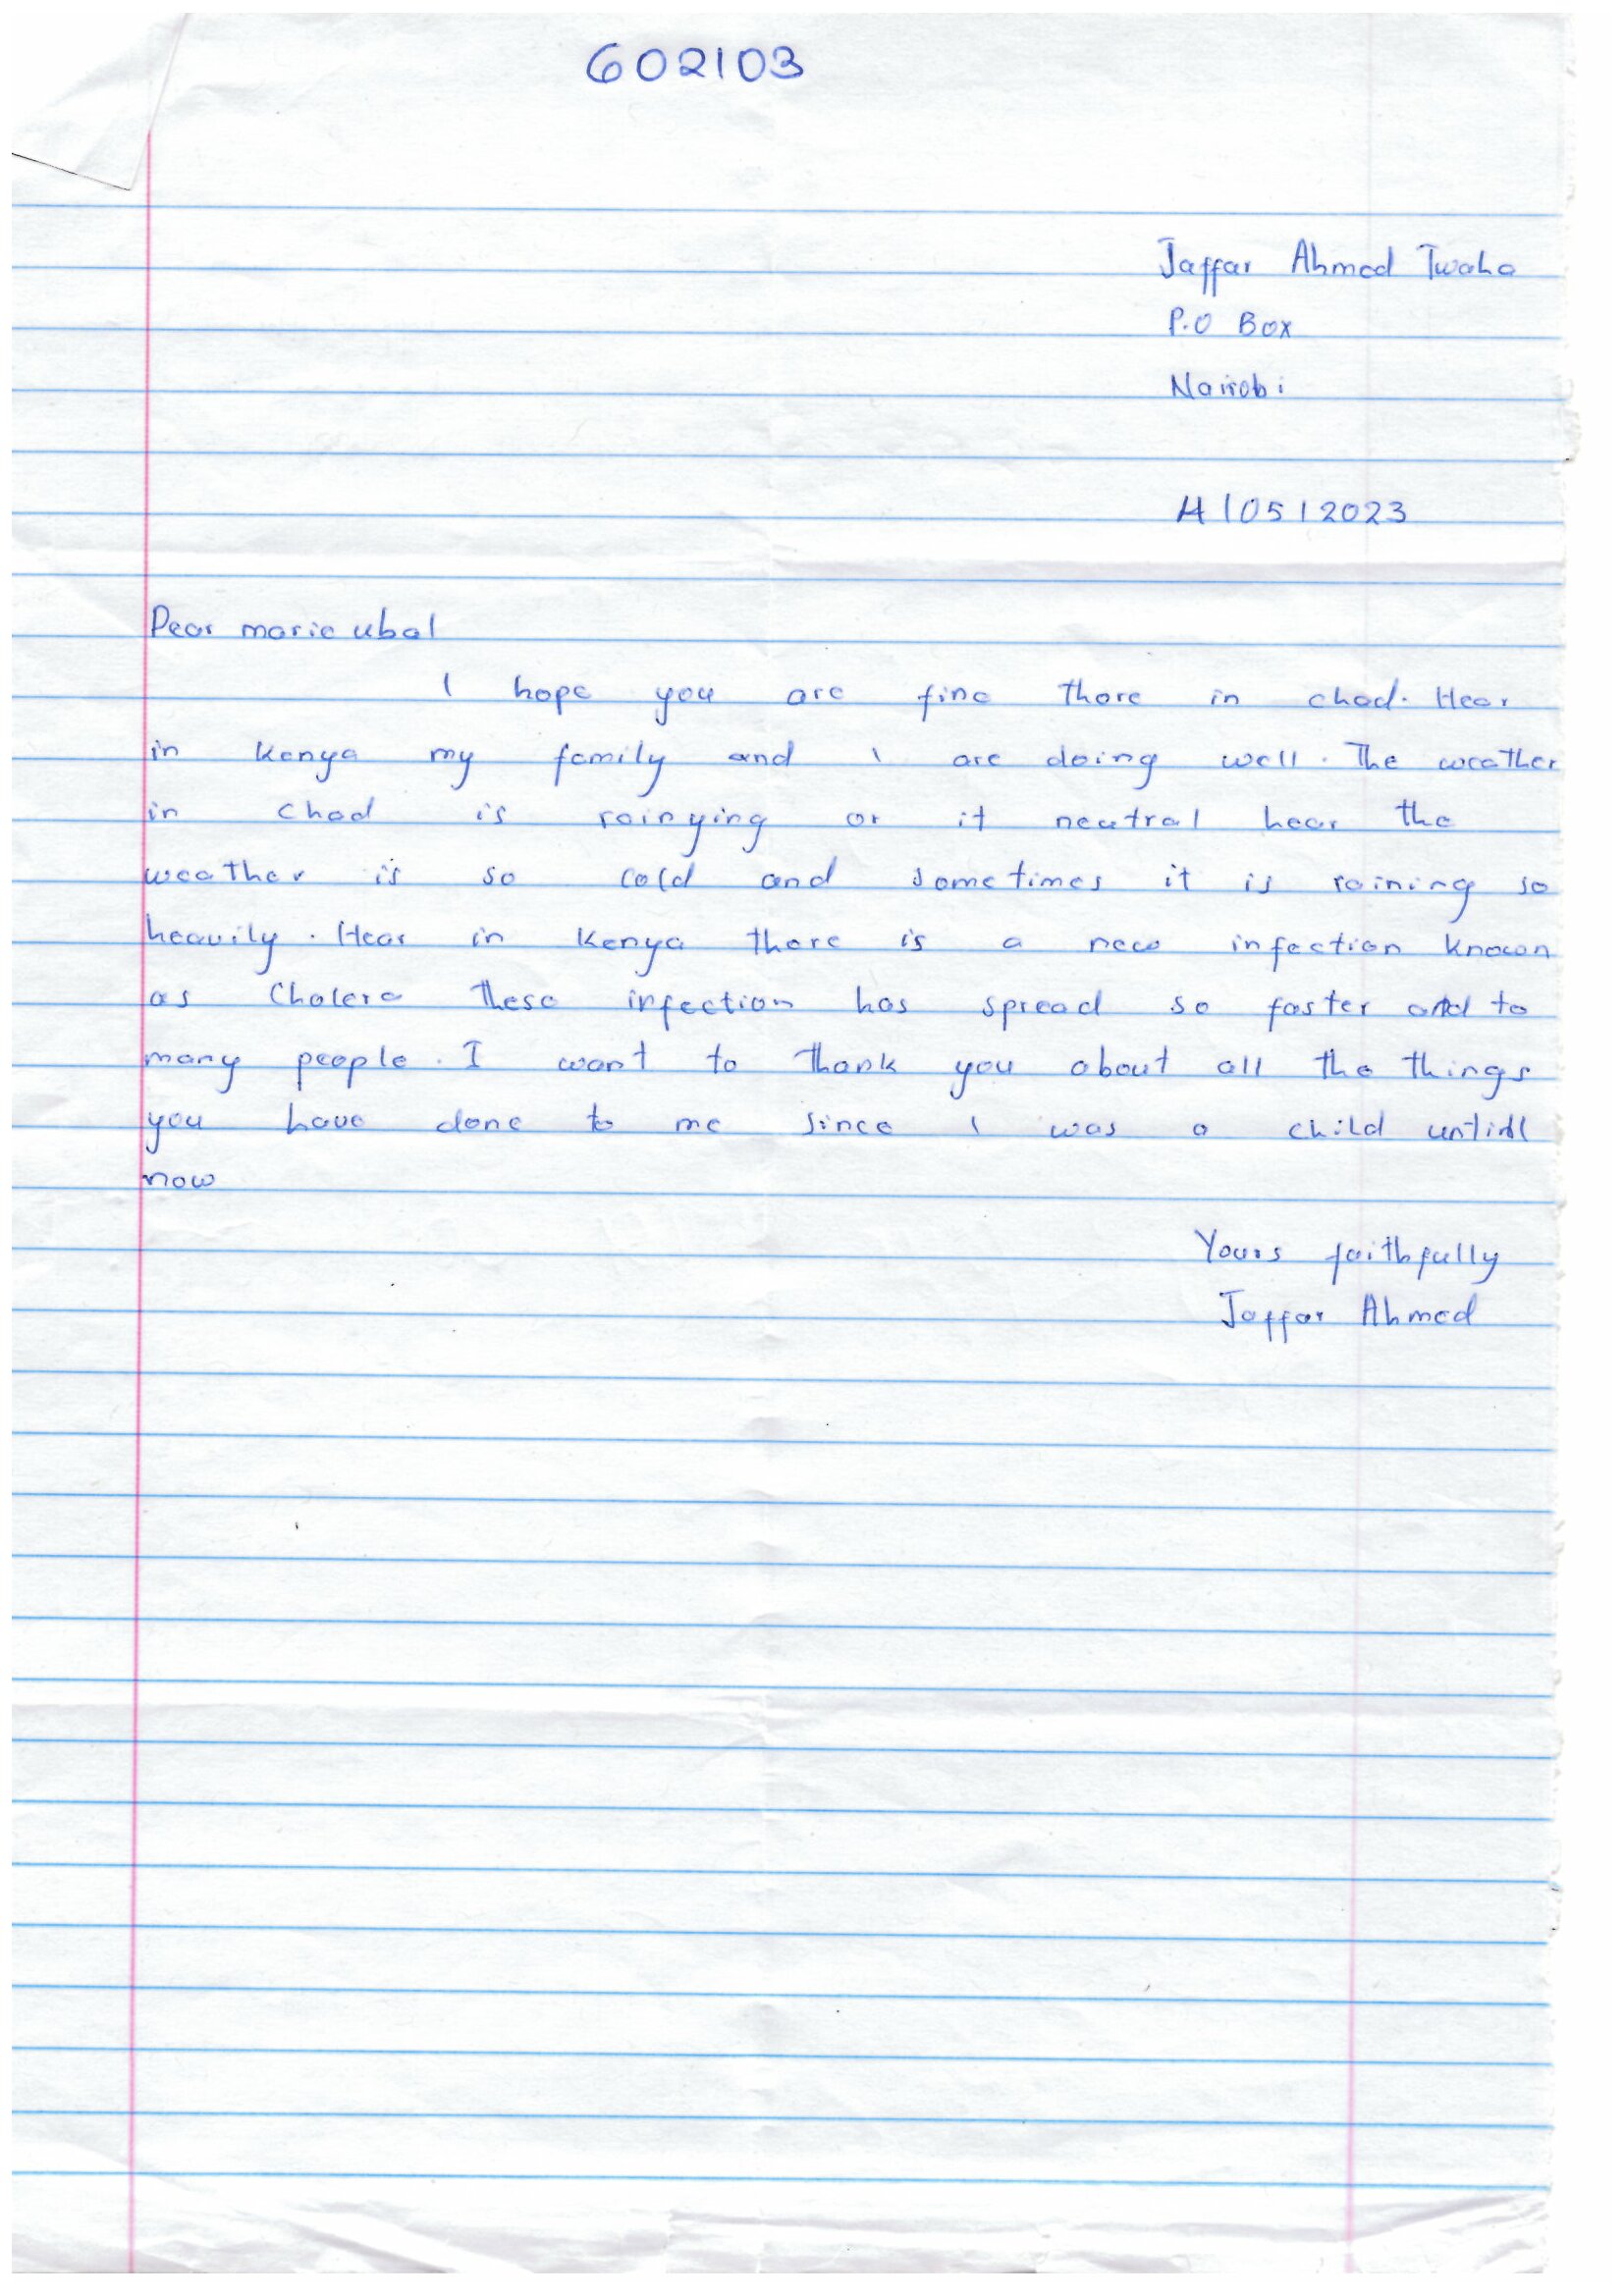 602103
Jaffar Ahmed Twaha
P.O Box
Nairobi
4/05/2023
Dear marie ubal
I hope you are fine there in chad. Hear
in Kenya my family and I are doing well. The weather
in chad is rainying or it neutral hear the
weather is so cold and sometimes it is raining so
heavily. Hear in Kenya there is a new infection known
as Cholera these infection has spread so faster and to
many people. I want to thank you about all the things
you have done to me since I was a child until
now
Yours faithfully
Jaffar Ahmed